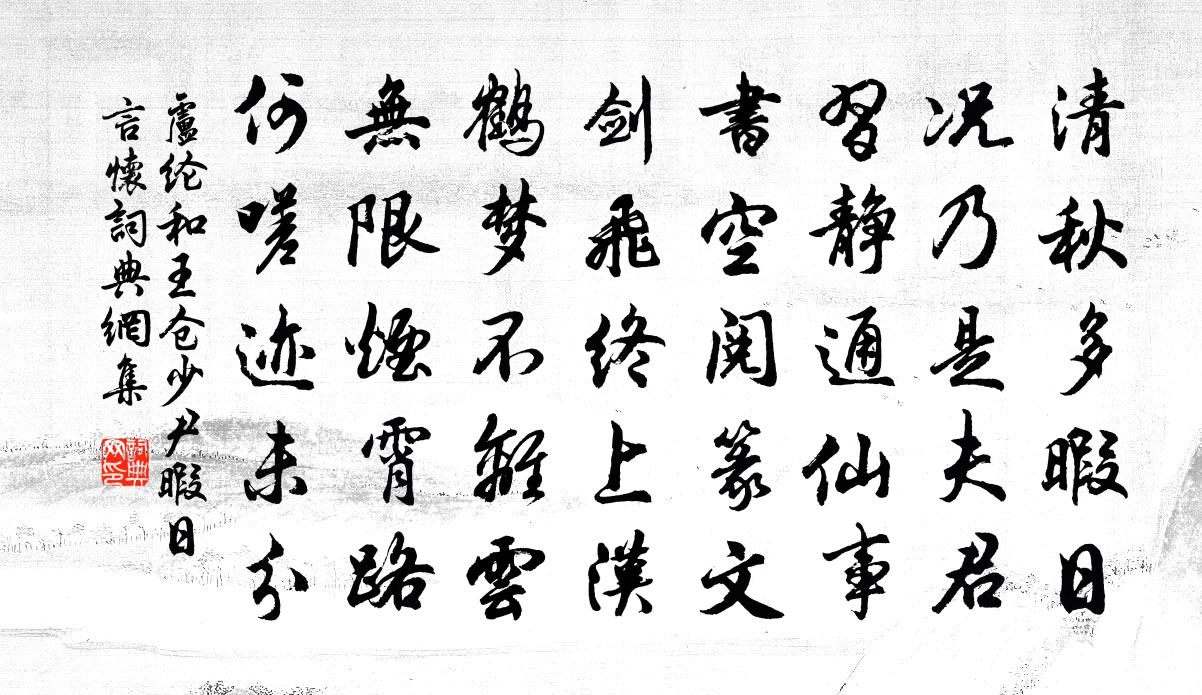 清秋多暇日
况乃是夫君
習静通仙事
書空阅篆文
剑飛终上漢
鶴梦不離雲
無限煙霄路
何嗟迹未分
盧纶和王仓少尹暇日
言懷詞典網集
詞典网印